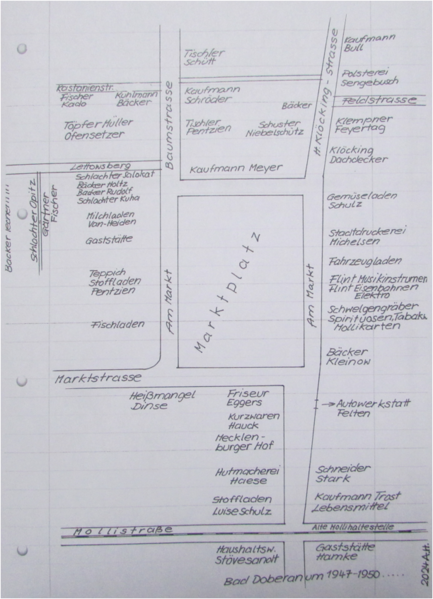 Tischler
Schütt
Kaufmann
Bull
Polsterei
Sengebusch
Feldstrasse
Klempner
Feyertag
Klöcking
Dachdecker
M Klöcking-strasse
Kastanienstr.
Fischer
Kado
Kuhlmann
Bäcker
Töpfer Hüller
Ofensetzer
Baumstrasse
Kaufmann
Schröder
Bäcker
Tischler
Pentzien
Schuster
Niebelschütz
Kaufmann Meyer
Lettowsberg
Bäcker
Schlachter Opitz
Gärtner
Fischer
Bäcker Holtz
Bäcker Rudolf
Schlachter Kuha
Milchladen
Von-Heiden
Gaststätte
Teppich
Stoffladen
Pentzien
Fischladen
Am Markt
Marktplatz
Am Markt
Gemüseladen
Schulz
Stadtdruckerei
Michelsen
Fahrzeugladen
Flint Musikinstrumen
Flint Eisenbahnen
Elektro
Schwelgengräber
Spirituosen, Tabakw
Mollikarten
Bäcker
Kleinow
Marktstrasse
Heißmangel
Dinse
Friseur
Eggers
Kurzwaren
Hauck
Mecklen-
burger Hof
Hutmacherei
Haese
Stoffladen
Luise Schulz
→ Autowerkstatt
Felten
Schneider
Stark
Kaufmann Trost
Lebensmittel
Mollistraße
Alte Mollihaltestelle
Haushaltsw.
Stövesandt
Gaststätte
Hamke
Bad Doberan um 1947-1950.....
2024 A.H.